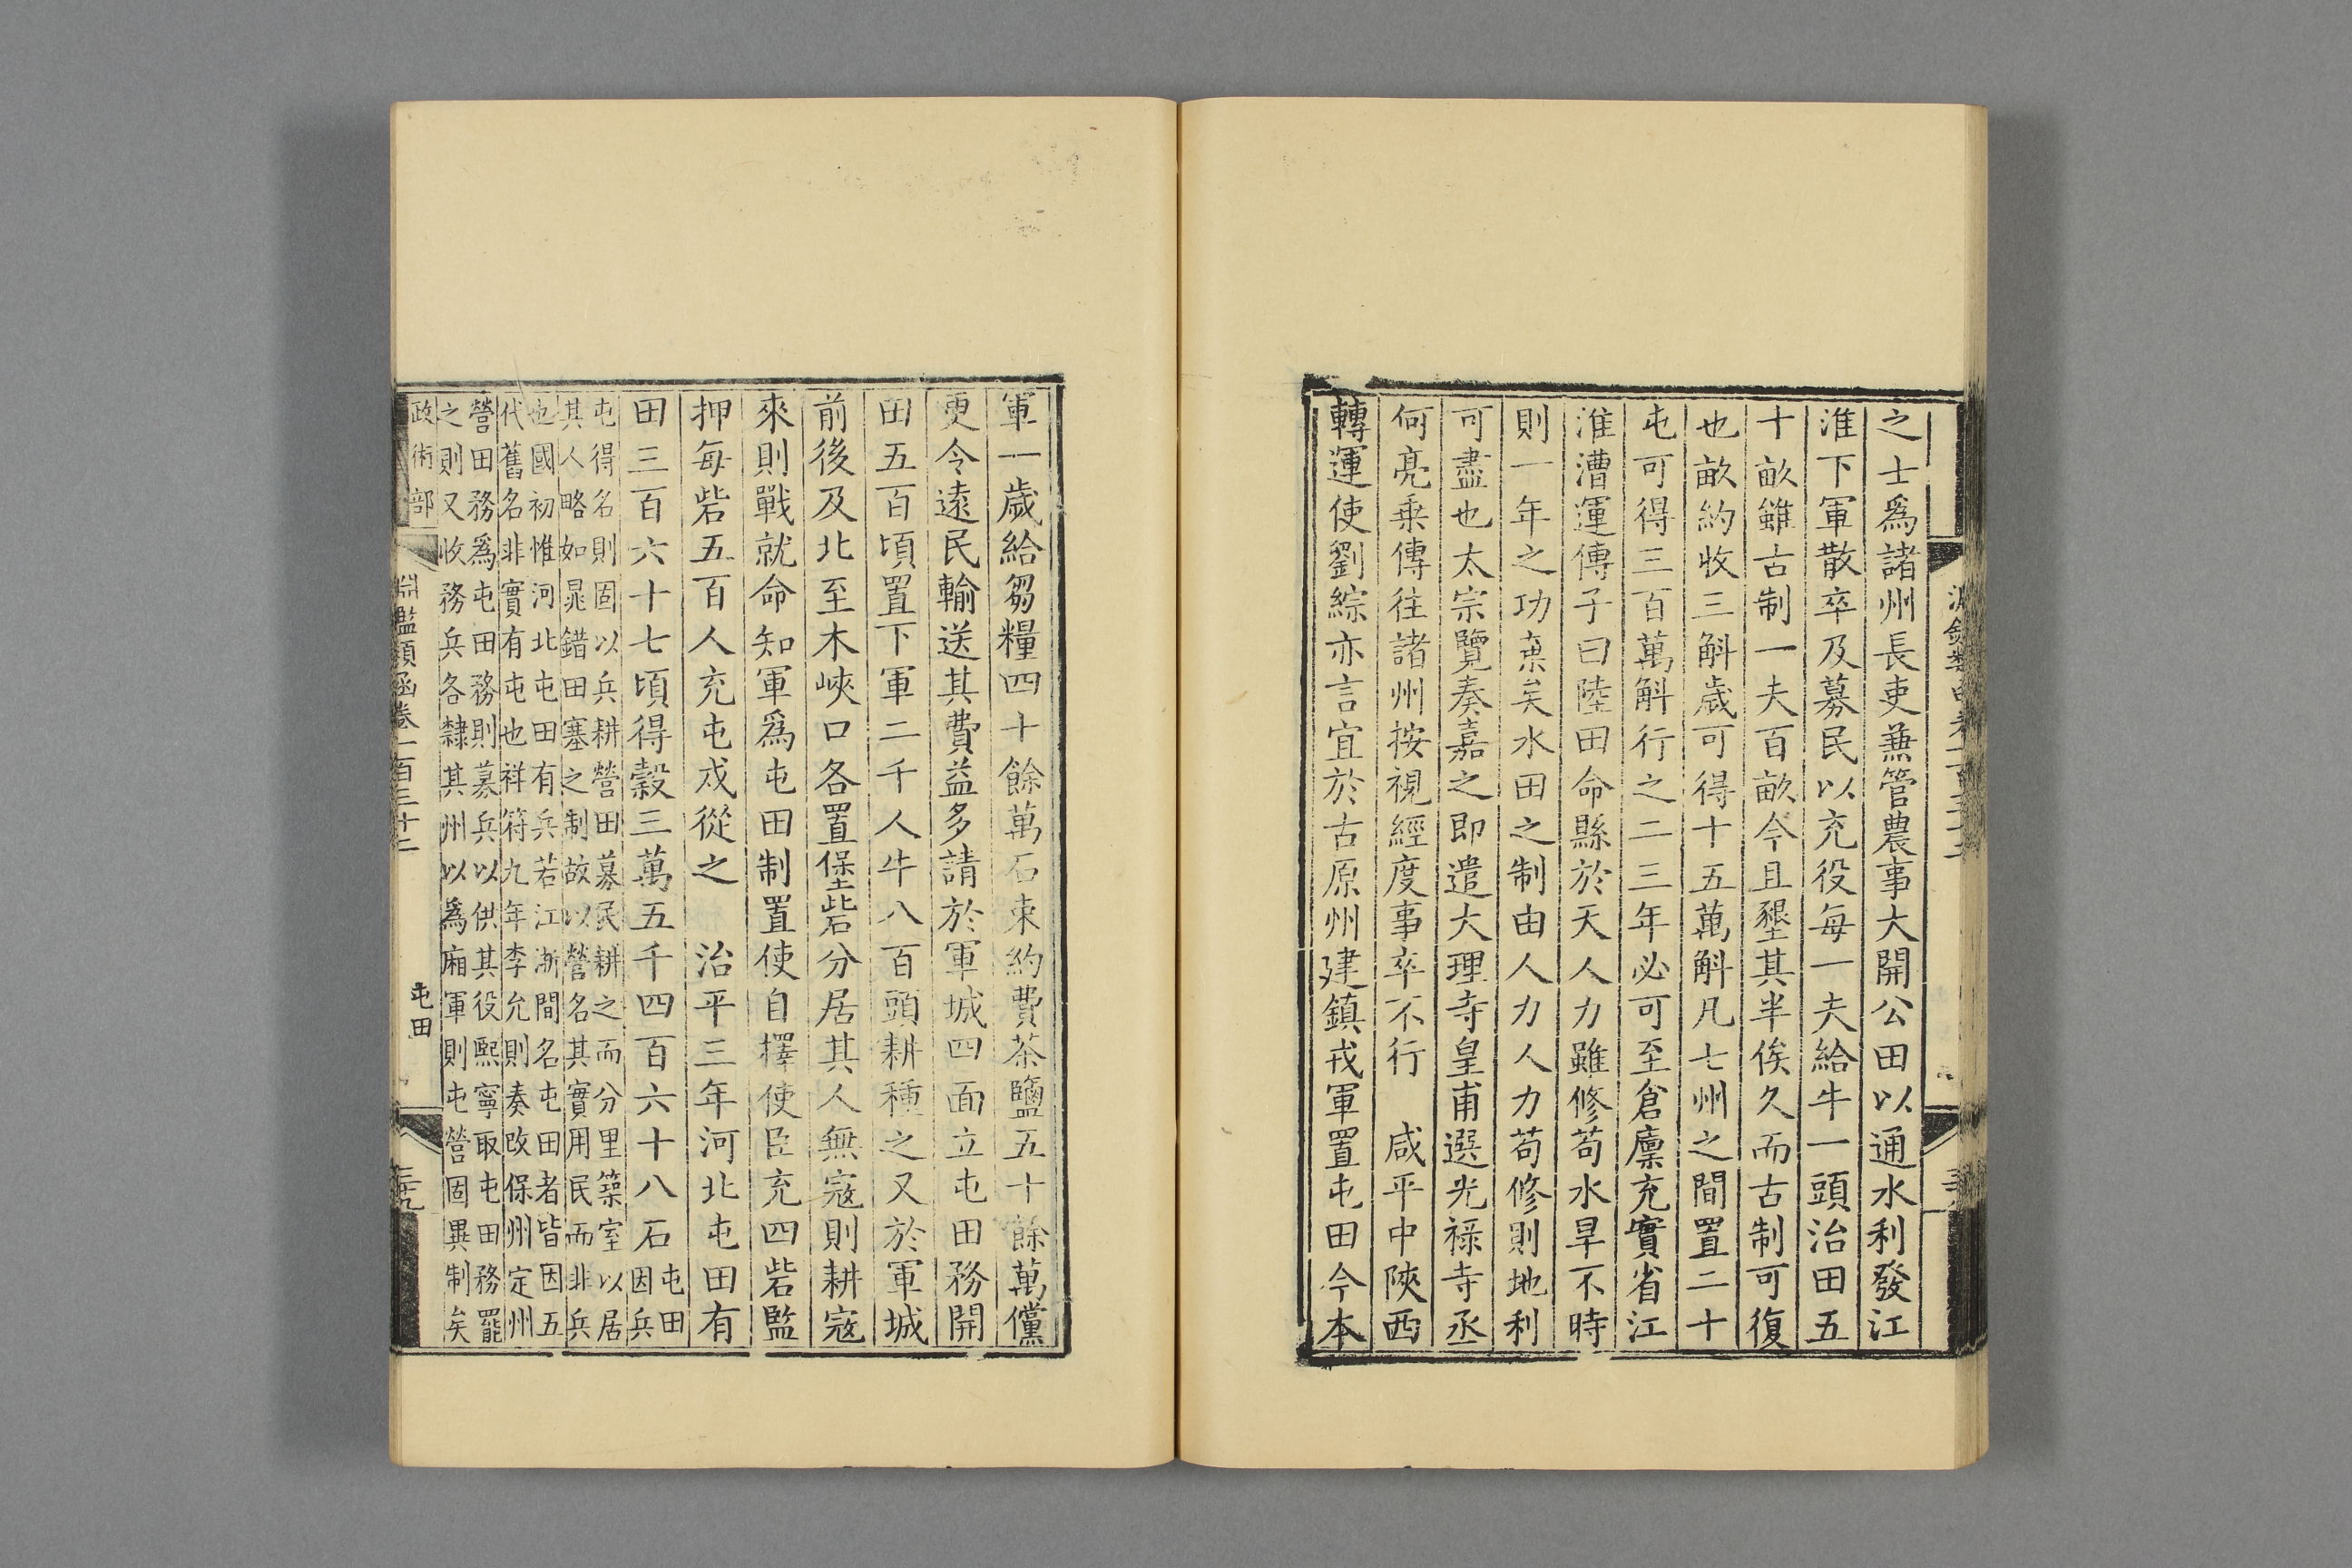 之士爲諸州長吏兼管農事大開公田以通水利發江
淮下軍散卒及募民以充役每一夫給牛一頭治田五
十畝雖古制一夫百畝今且墾其半俟久而古制可復
也畝約收三斛歲可得十五萬斛凡七州之間置二十
屯可得三百萬斛行之二三年必可至倉廩充實省江
淮漕運傳子曰陸田命縣於天人力雖修苟水旱不時
則一年之功棄矣水田之制由人力人力苟修則地利
可盡也太宗覽奏嘉之即遣大理寺皇甫選光祿寺丞
何亮乘傳往諸州按視經度事卒不行　咸平中陝西
轉運使劉綜亦言宜於古原州建鎮戎軍置屯田今本
軍一歲給芻糧四十餘萬石束約費茶鹽五十餘萬儻
更令遠民輸送其費益多請於軍城四面立屯田務開
田五百頃置下軍二千人牛八百頭耕種之又於軍城
前後及北至木峽口各置堡砦分居其人無寇則耕寇
來則戰就命知軍爲屯田制置使自擇使臣充四砦監
押每砦五百人充屯戍從之　治平三年河北屯田有
田三百六十七頃得穀三萬五千四百六十八石
屯田
因兵
屯得名則固以兵耕營田募民耕之而分里築室以居
其人略如晁錯田塞之制故以營名其實用民而非兵
也國初惟河北屯田有兵若江浙間名屯田者皆因五
代舊名非實有屯也祥符九年李允則奏改保州定州
營田務爲屯田務則募兵以供其役熙寧取屯田務罷
之則又收務兵各隸其州以爲廂軍則屯營固異制矣
政術部
淵鑑類函卷一百三十二
屯田
三十九